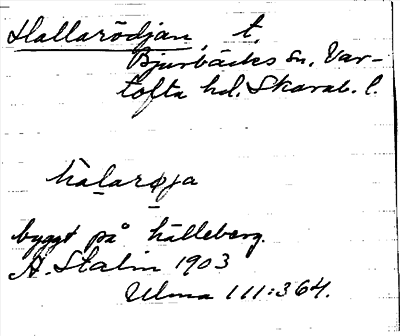 Hallarödjan, t.
Bjurbäcks sn. Var-
tofta hd. Skarab. l.
hàlarøja
byggt på hälleberg.
A. Stalin 1903
Ulma 111:364.